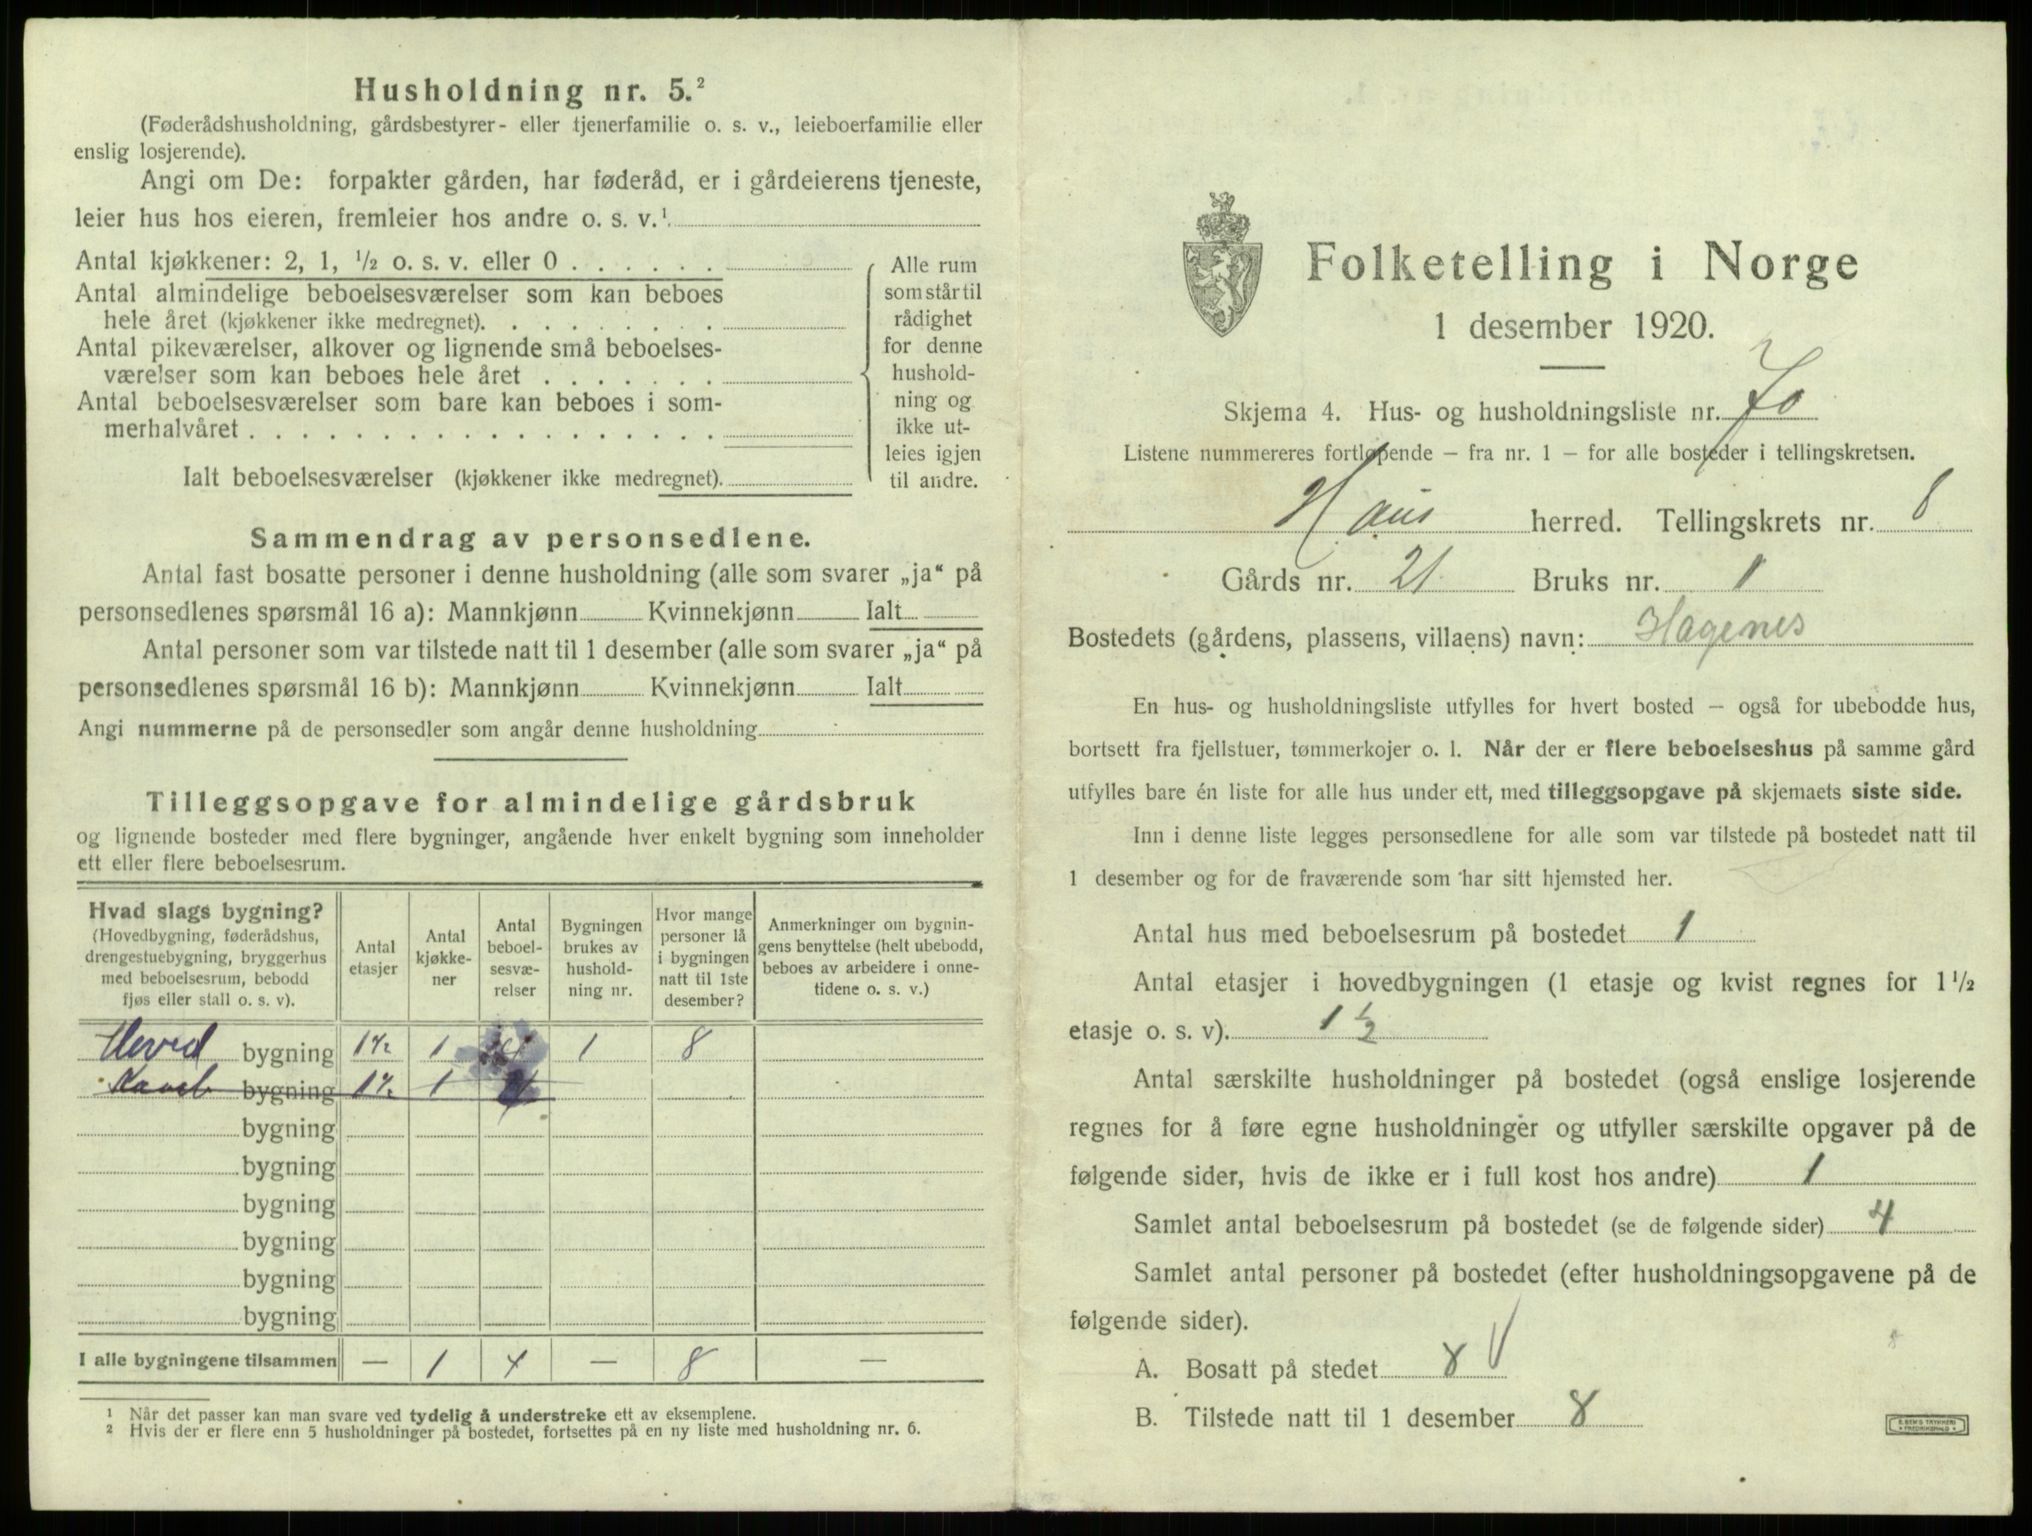 Husholdning nr. 5.²
(Føderådshusholdning, gårdsbestyrer- eller tjenerfamilie o. s. v., leieboerfamilie eller
enslig losjerende).
Angi om De: forpakter gården, har føderåd, er i gårdeierens tjeneste,
leier hus hos eieren, fremleier hos andre o. s. v.¹
Antal kjøkkener: 2, 1, ½ o. s. v. eller 0
Antal almindelige beboelsesværelser som kan beboes
hele året (kjøkkener ikke medregnet).
Antal pikeværelser, alkover og lignende små beboelses-
værelser som kan beboes hele året
Antal beboelsesværelser som bare kan beboes i som-
merhalvåret
Ialt beboelsesværelser (kjøkkener ikke medregnet).
Alle rum
som står til
rådighet
for denne
hushold-
ning og
ikke ut-
leies igjen
til andre.
Sammendrag av personsedlene.
Antal fast bosatte personer i denne husholdning (alle som svarer „ja“ på
personsedlenes spørsmål 16 a): Mannkjønn Kvinnekjønn Ialt
Antal personer som var tilstede natt til 1 desember (alle som svarer „ja“ på
personsedlenes spørsmål 16 b): Mannkjønn Kvinnekjønn Ialt
Angi nummerne på de personsedler som angår denne husholdning
Tilleggsopgave for almindelige gårdsbruk
og lignende bosteder med flere bygninger, angående hver enkelt bygning som inneholder
ett eller flere beboelsesrum.
Hvad slags bygning?
(Hovedbygning, føderådshus,
drengestuebygning, bryggerhus
med beboelsesrum, bebodd
fjøs eller stall o. s. v).
Antal
etasjer
Antal
kjøkke-
ner
Antal
beboel-
sesvæ-
relser
Bygningen
brukes av
hushold-
ning nr.
Hvor mange
personer lå
i bygningen
natt til 1ste
desember?
Anmerkninger om bygnin-
gens benyttelse (helt ubebodd,
beboes av arbeidere i onne-
tidene o. s. v.)
Hoved bygning 1½ 1 1 8
bygning 1½ 1
bygning
bygning
bygning
bygning
bygning
bygning
I alle bygningene tilsammen — 1 4 — 8 —
¹ Når det passer kan man svare ved tydelig å understreke ett av eksemplene.
² Hvis der er flere enn 5 husholdninger på bostedet, fortsettes på en ny liste med husholdning nr. 6.
Folketelling i Norge
1 desember 1920.
Skjema 4. Hus- og husholdningsliste nr. 70
Listene nummereres fortløpende – fra nr. 1 – for alle bosteder i tellingskretsen.
Haus herred. Tellingskrets nr. 8
Gårds nr. 21. Bruks nr. 1
Bostedets (gårdens, plassens, villaens) navn: Hagenes
En hus- og husholdningsliste utfylles for hvert bosted – også for ubebodde hus,
bortsett fra fjellstuer, tømmerkojer o. l. Når der er flere beboelseshus på samme gård
utfylles bare én liste for alle hus under ett, med tilleggsopgave på skjemaets siste side.
Inn i denne liste legges personsedlene for alle som var tilstede på bostedet natt til
1 desember og for de fraværende som har sitt hjemsted her.
Antal hus med beboelsesrum på bostedet 1
Antal etasjer i hovedbygningen (1 etasje og kvist regnes for 1½
etasje o. s. v). 1½
Antal særskilte husholdninger på bostedet (også enslige losjerende
regnes for å føre egne husholdninger og utfyller særskilte opgaver på de
følgende sider, hvis de ikke er i full kost hos andre) 1
Samlet antal beboelsesrum på bostedet (se de følgende sider) 4
Samlet antal personer på bostedet (efter husholdningsopgavene på de
følgende sider).
A. Bosatt på stedet 8
B. Tilstede natt til 1 desember 8